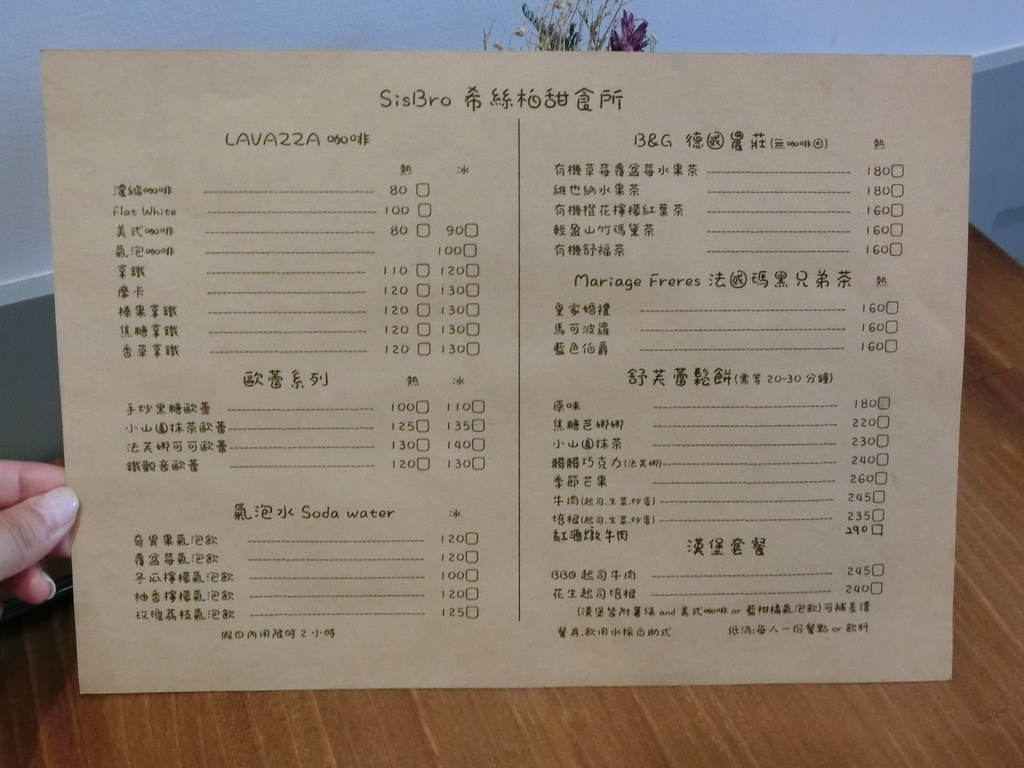 SisBro 希絲柏甜食所
LAVAZZA 咖啡
熱 冰
濃縮咖啡 80
Flat White 100
美式咖啡 80 90
氣泡咖啡 100
拿鐵 110 120
摩卡 120 130
榛果拿鐵 120 130
焦糖拿鐵 120 130
香草拿鐵 120 130
歐蕾系列 熱 冰
手炒黑糖歐蕾 100 110
小山園抹茶歐蕾 125 135
法芙娜可可歐蕾 130 140
鐵觀音歐蕾 120 130
氣泡水 Soda water 冰
奇異果氣泡飲 120
覆盆莓氣泡飲 120
冬瓜檸檬氣泡飲 100
柚香檸檬氣泡飲 120
玫瑰荔枝氣泡飲 125
假日內用限時 2 小時
B&G 德國農莊(無咖啡因) 熱
有機草莓覆盆莓水果茶 180
維也納水果茶 180
有機橙花檸檬紅葉茶 160
輕盈山竹瑪黛茶 160
有機舒福茶 160
Mariage Freres 法國瑪黑兄弟茶 熱
皇家婚禮 160
馬可波羅 160
藍色伯爵 160
舒芙蕾鬆餅(需等 20-30 分鐘)
原味 180
焦糖芭娜娜 220
小山園抹茶 230
髒髒巧克力(法芙娜) 240
季節芒果 260
牛肉(起司.生菜.炒蛋) 245
培根(起司.生菜.炒蛋) 235
紅酒燉牛肉 290
漢堡套餐
BBQ 起司牛肉 245
花生起司培根 240
(漢堡皆附薯條 and 美式咖啡 or 藍柑橘氣泡飲)可補差價
餐具.飲用水採自助式 低消:每人一份餐點 or 飲料